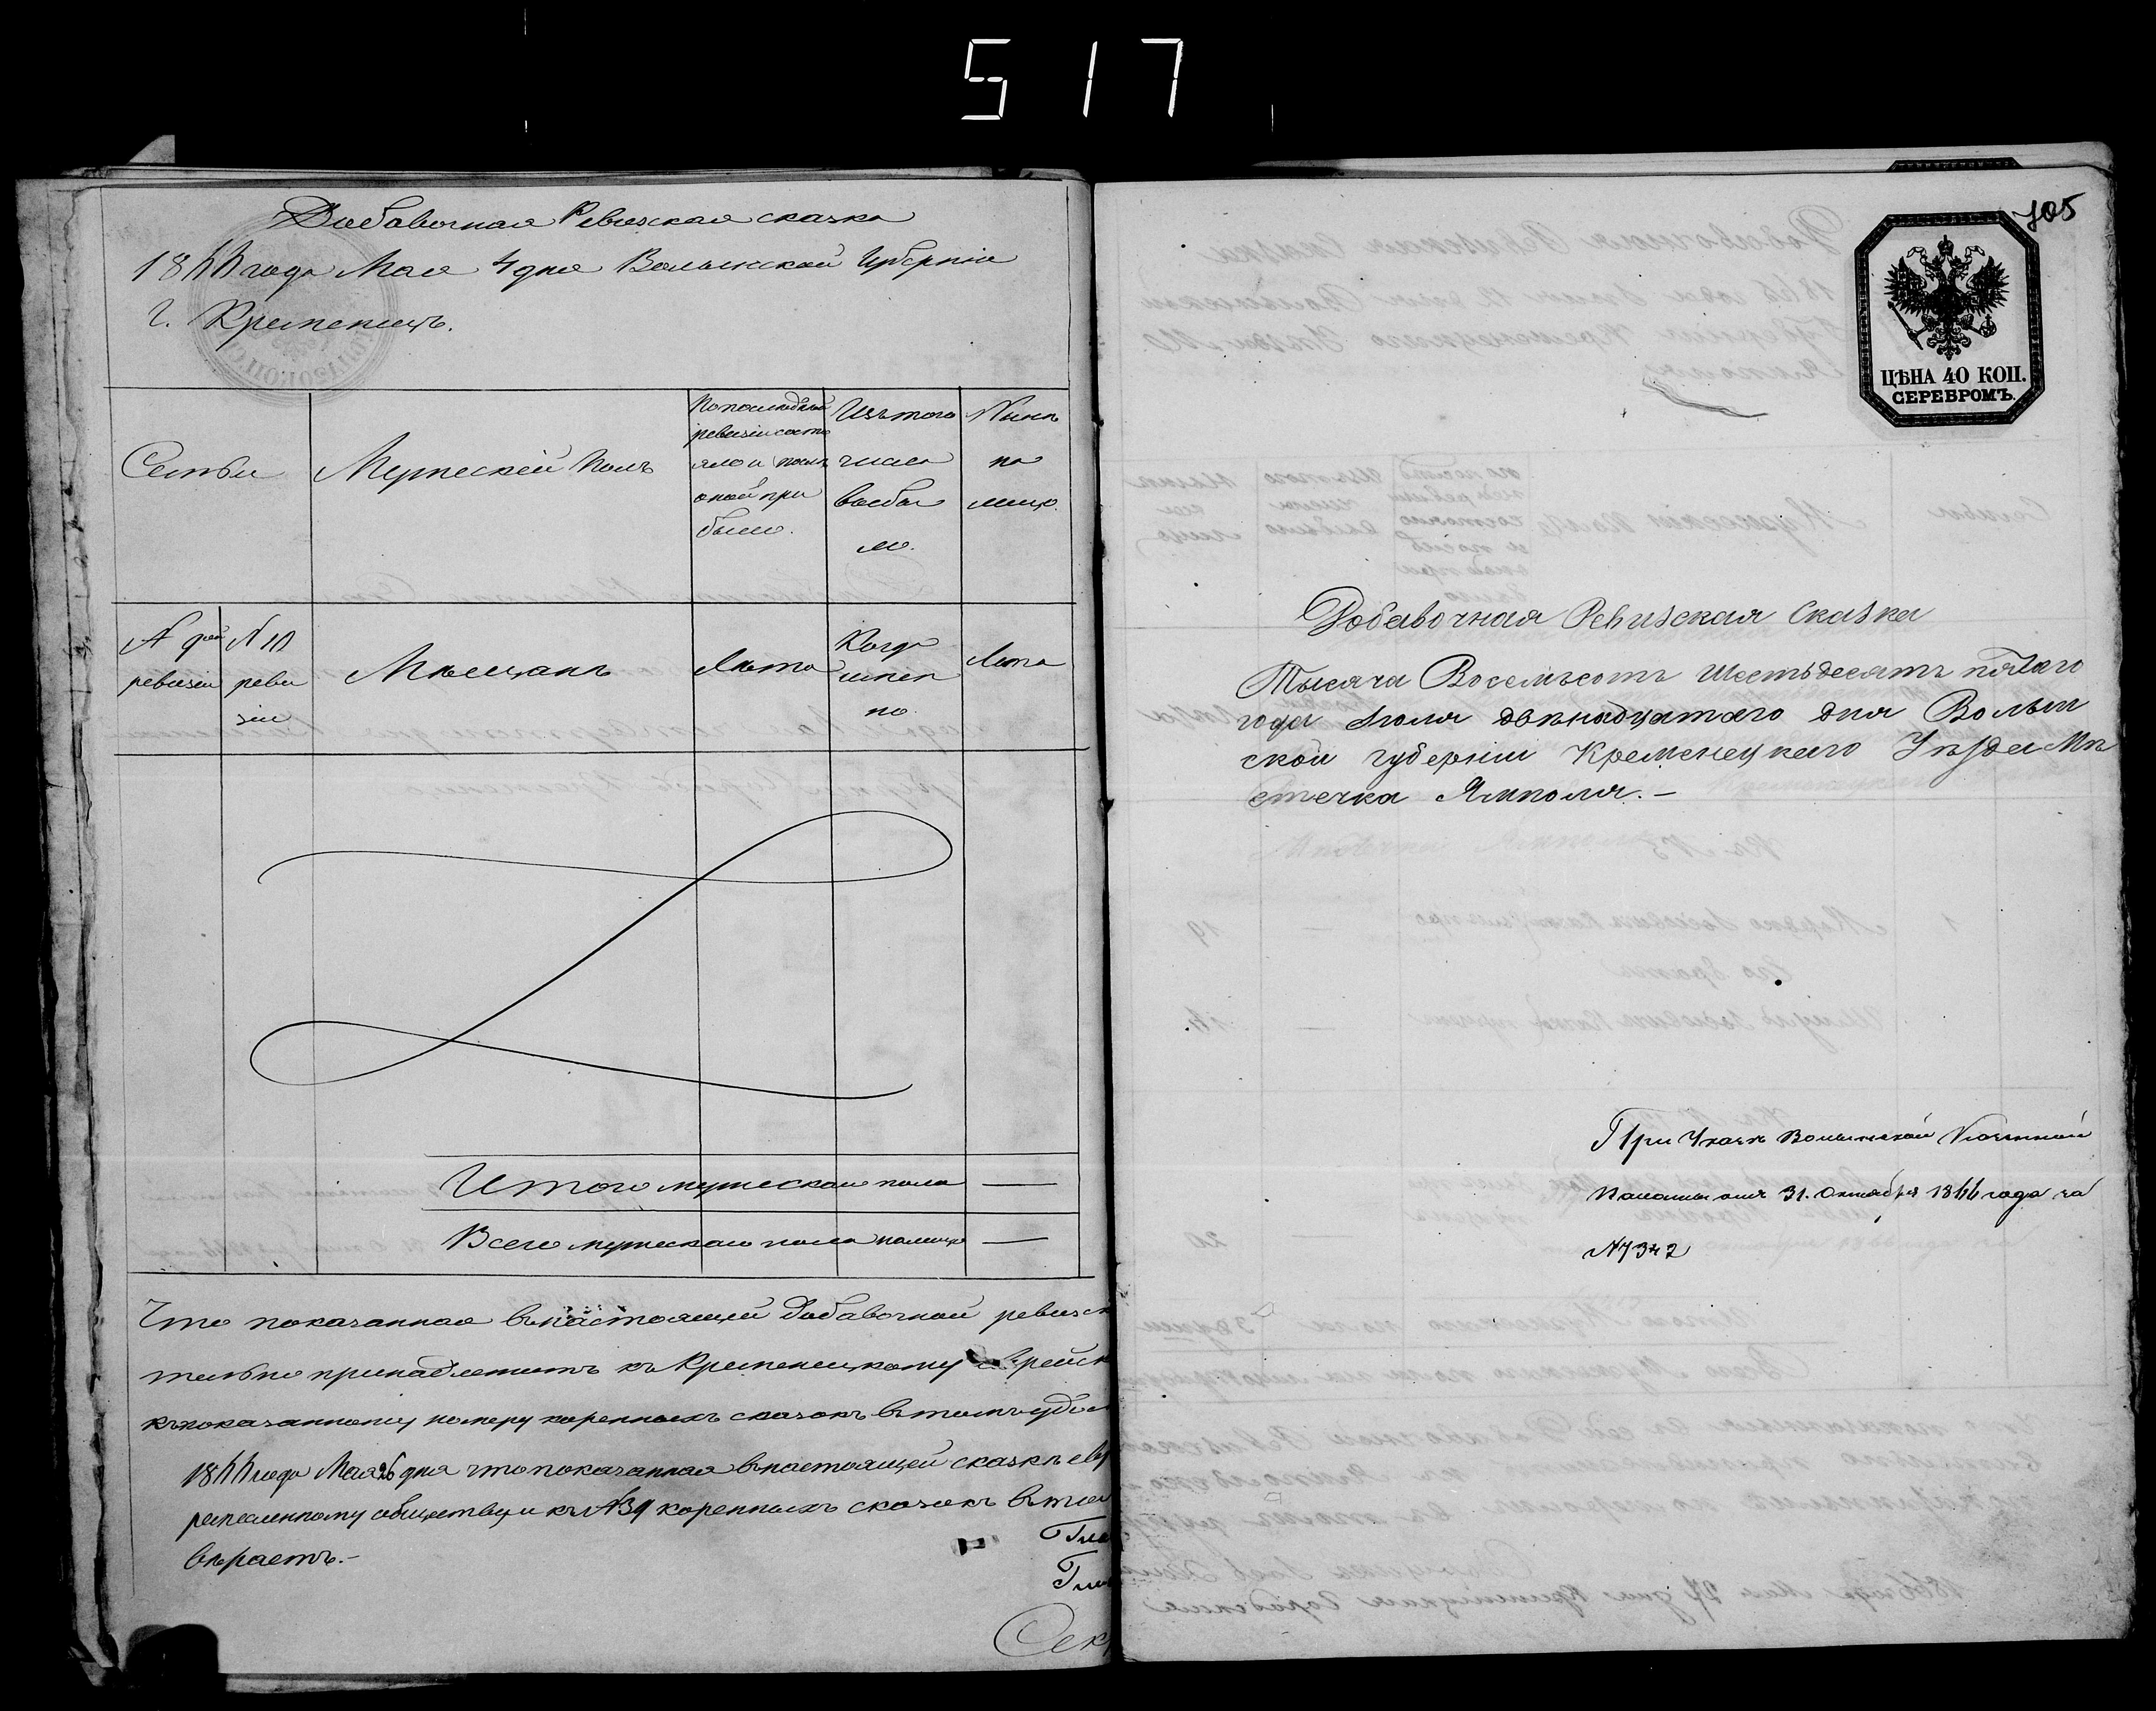 517
Добавочная Ревизская сказка
1866 года Мая 4 дня Волынской Губерніи
г. Кременецъ.
Семьи
Мужескій полъ
По последней ревизіи состояло и после оной прибыло.
Изъ того числа выбыло.
Нынѣ на лицо.
№ 9ой ревизіи
№ 10 ревизіи
Мѣщанъ
Лѣта
Когда именно.
Лѣта
Итого мужеска пола —
Всего мужеска пола налицо —
Что показанная въ настоящей Добавочной ревизск
тельно принадлежитъ къ Кременецкому Еврейск
къ показанному номеру коренныхъ сказокъ въ томъ удо
1866 года Мая 26 дня что показанная въ настоящей сказкѣ евр
обществу и къ №39 коренныхъ сказокъ въ том
вѣряетъ.—
Гла
Гла
Сек
705
ЦѢНА 40 КОП.
СЕРЕБРОМЪ.
Добавочная Ревизская Сказка
Тысяча Восемьсотъ Шестьдесятъ пятаго
года Іюля двѣнадцатаго дня Волын
ской губерніи Кременецкаго Уѣзда Мѣ
стечка Ямполя.—
При Указѣ Волынской Казенной
Палаты отъ 31. Октября 1866 года за
№7342